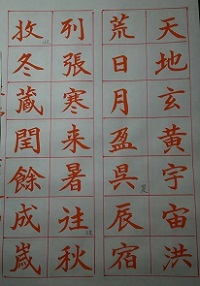 天地玄黃宇宙洪
荒日月盈呉辰宿
列張寒来暑往秋
收冬藏閏餘成歲